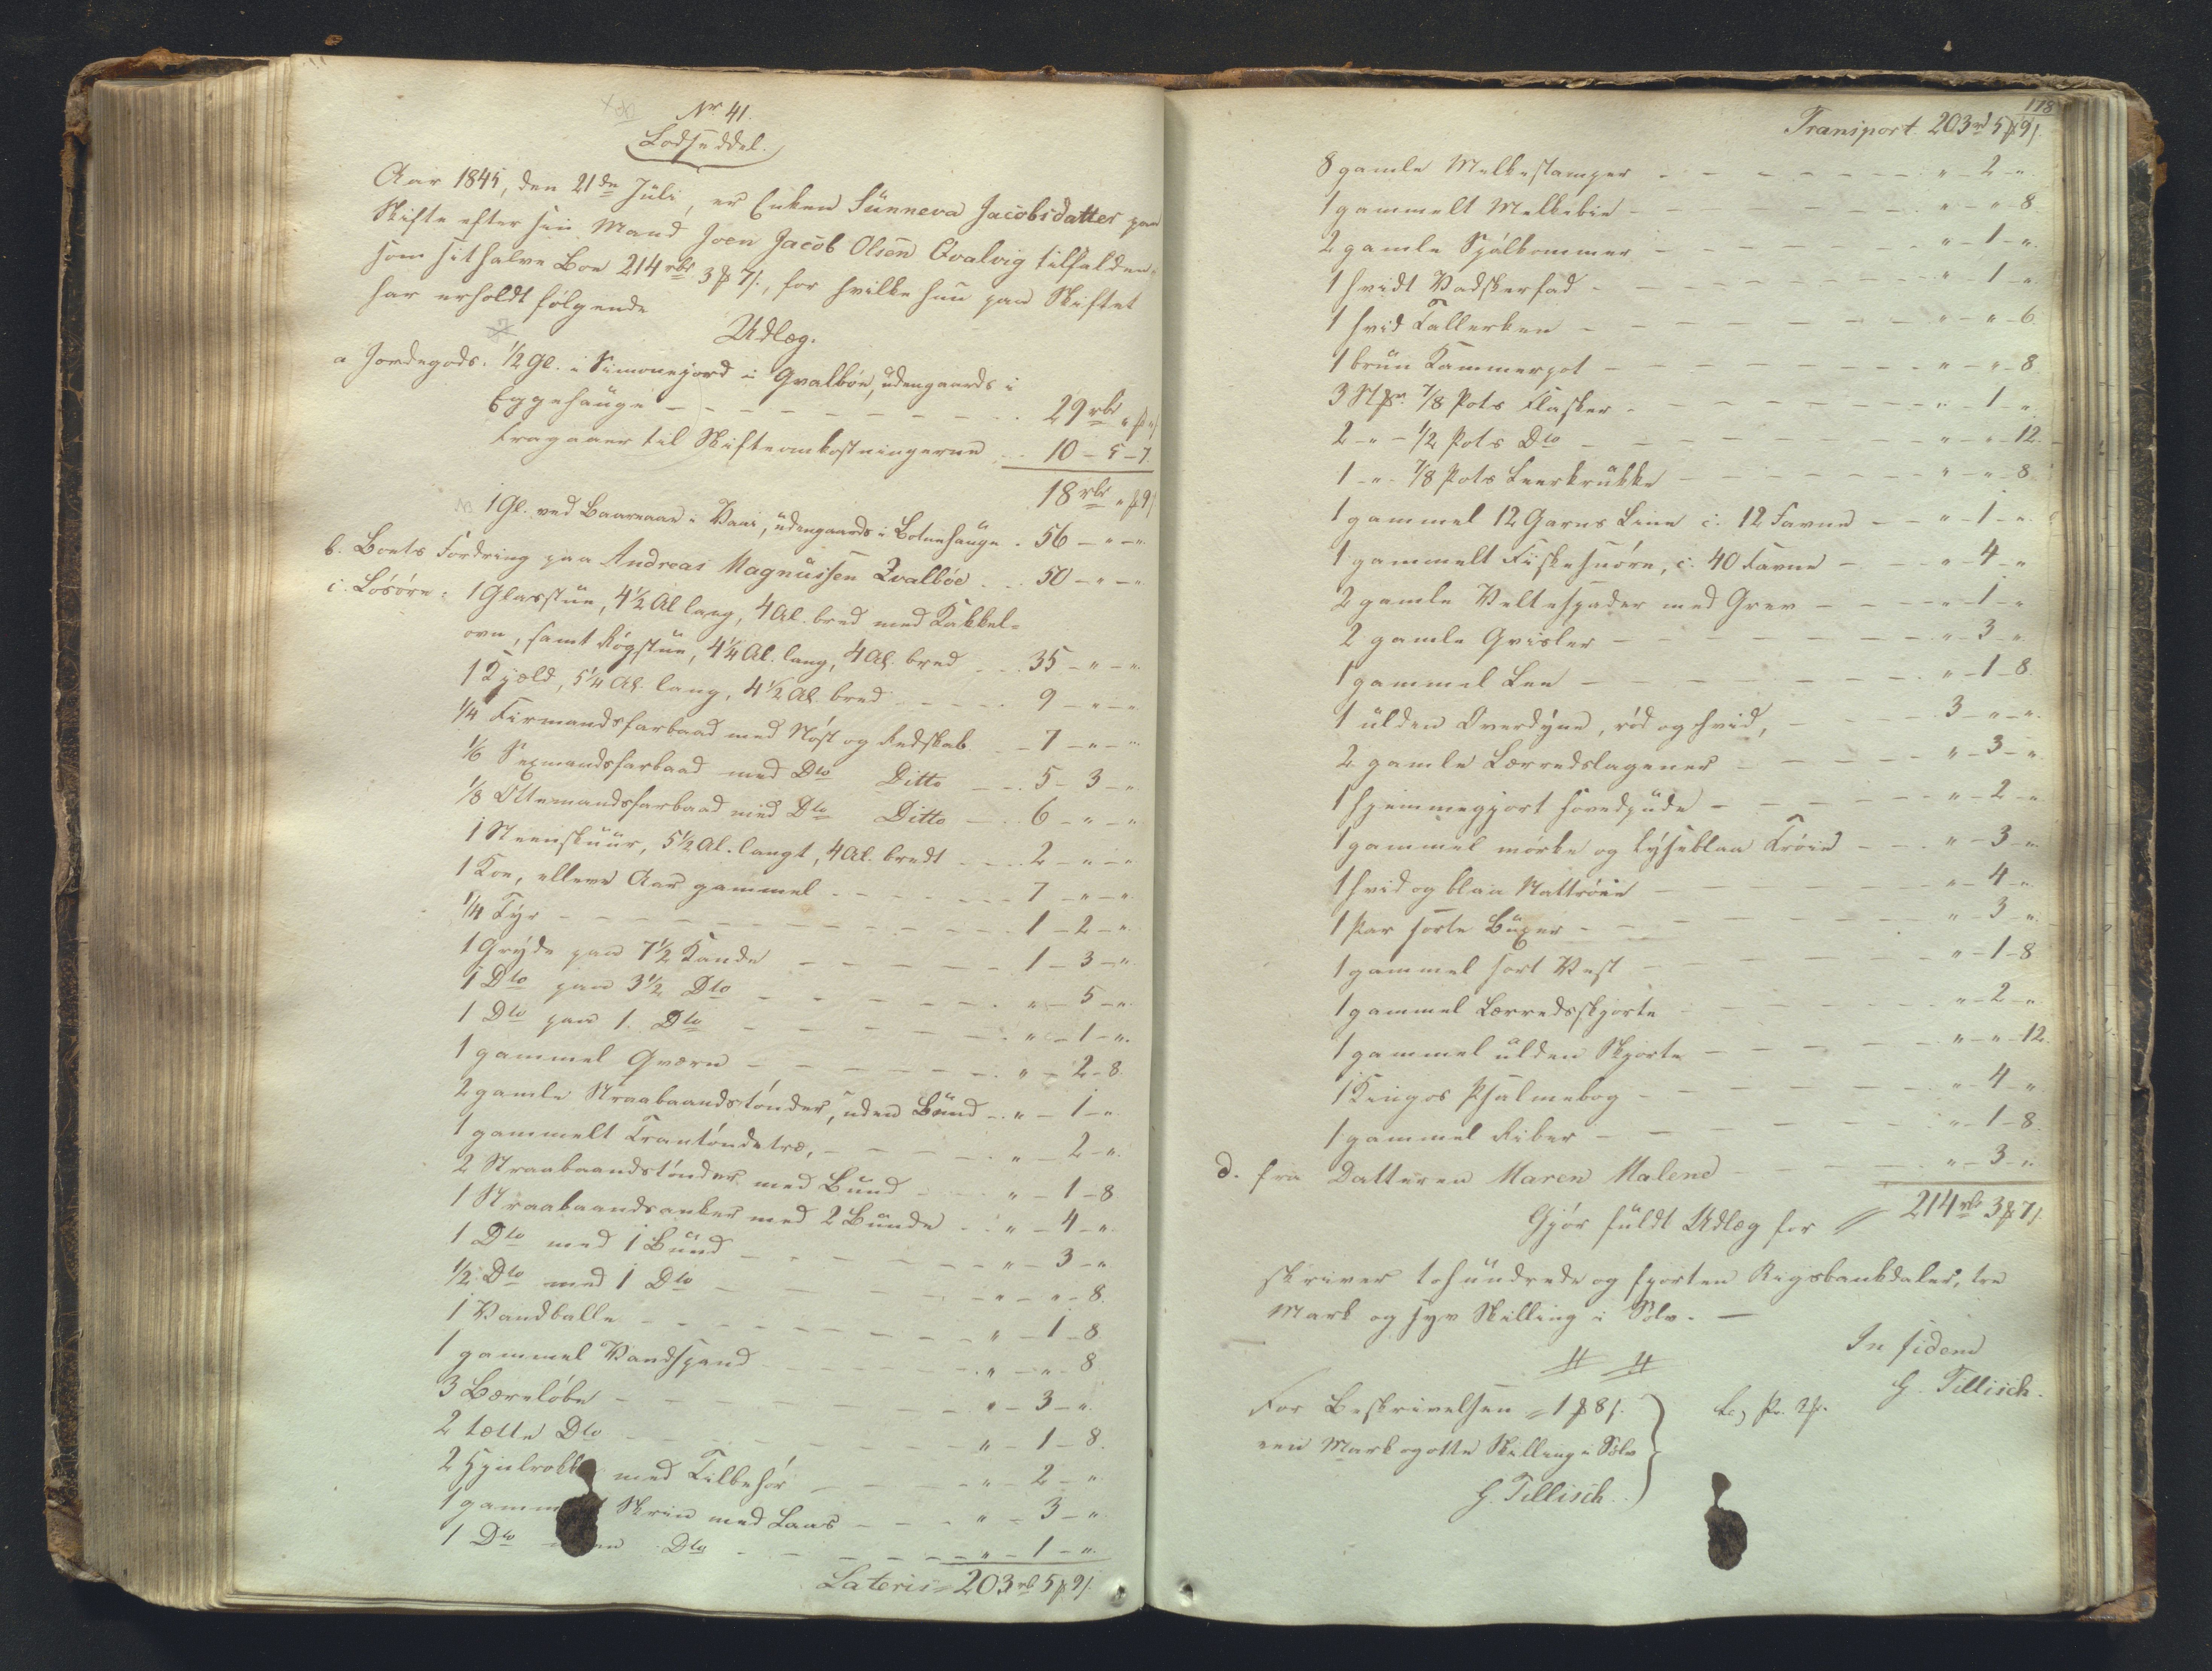 Nr 41.
Lodseddel.
Aar 1845, den 21de Júli, er Enken Súnneva Jacobsdatter paa
Skifte efter sin Mand Joen Jacob Olsen Qvalvig tilfalden,
som sit halve Boe 214 rbd 3 ℔ 7 s., for hvilke hun paa Skiftet
har erholdt følgende
Udlæg.
a Jordegods: ½ Gl. i Simonejord i Qvalböe, údengaards i
Eggehaúge - - - 29 rbd " ℔ " s
fragaaer til Skifteomkostningerne - 10 - 5 - 7
18 rbd " ℔ 9 s
1 Gl. ved Baarnaae i Vaai, údengaards i Botnehaúge - 56 - " - "
b. Boets Fordring paa Andreas Magnússen Qvalböe - 50 - " - "
c. Lösöre: 1 Glasstúe, 4½ Al lang, 4 Al. bred med Kakkel-
ovn, samt Rögstúe, 4¼ Al. lang, 4 Al. bred - 35 - " - "
1 Hjæld, 5¼ Al. lang, 4½ Al. bred - 9 - " - "
¼ Firmandsfarbaad med Nöst og Redskab - 7 - " - "
⅙ Sexmandsfarbaad med Dto Ditto - 5 - 3 - "
⅛ Ottemandsfarbaad med Dto Ditto - 6 - " - "
1 Steenskúúr, 5½ Al. langt, 4 Al. bredt - 2 - " - "
1 Koe, elleve Aar gammel - 7 - " - "
¼ Týr - 1 - 2 - "
1 Grýde paa 7½ Kande - 1 - 3 - "
1 Dto paa 3½ Dto - " - 5 - "
1 Dto paa 1. Dto - " - 1 - "
1 gammel Qværn - " - 2 - 8
2 gamle Straabaandstönder, úden Búnd - " - 1 - "
1 gammelt Trantöndetræ, - " - 2 - "
2 Straabaandstönder med Búnd - " - 1 - 8
1 Straabaandsanker med 2 Búnde - " - 4 - "
1 Dto med 1 Búnd - " - 3 - "
½ Dto med 1 Dto - " - " - 8
1 Vandballe - " - 1 - 8
1 gammel Vandspand - " - " - 8
3 Bæreløbe - " - 3 - "
2 tætte Dto - " - 1 - 8
2 Hjulrokke med Tilbehör - " - 2 - "
1 gammelt Skrin med Laas - " - 3 - "
1 Dto uden Dto - " - 1 - "
Lateris = 203 rbd 5 ℔ 9 s.
178
Transport 203 rd 5 ℔ 9 s.
8 gamle Melkestamper - " - 2 - "
1 gammelt Melkebie - " - " - 8
2 gamle Spölkommer - " - 1 - "
1 hvidt Vadskerfad - " - 1 - "
1 hvid Tallerken - " - " - 6
1 brún Kammerpot - " - " - 8
3 Stkr. ⅞ Pots Flasker - " - 1 - "
2 - " - ½ Pots Dto - " - " - 12
1 - " - ⅞ Pots Leerkrúkke - " - " - 8
1 gammel 12 Garns Line c. 12 Favne - " - 1 - "
1 gammelt Fiskesnöre, c. 40 Favne - " - 4 - "
2 gamle Veltespader med Grev - " - 1 - "
2 gamle Gvisler - " - 3 - "
1 gammel Lee - " - 1 - 8
1 úlden Overdýne, röd og hvid, - 3 - " - "
2 gamle Lærredslagener - " - 3 - "
1 hjemmegjort Hovedpúde - " - 2 - "
1 gammel mörke og lýseblaa Tröie - " - 3 - "
1 hvid og blaa Nattröie - " - 4 - "
1 Par sorte Búxer - " - 3 - "
1 gammel sort Vest - " - 1 - 8
1 gammel Lærredsskjorte - " - 2 - "
1 gammel úlden Skjorte - " - " - 12
1 Kingos Psalmebog - " - 4 - "
1 gammel Riber - " - 1 - 8
d. fra Datteren Maren Malene - " - 3 - "
Gjör fúldt Udlæg for = 214 rbd 3 ℔ 7 s.
skriver tohúndrede og fjorten Rigsbankdaler, tre
Mark og syv Skilling i Sölv. -
In fidem
G. Tillisch.
For Beskrivelsen = 1 ℔ 8 s.
een Mark og otte Skilling i Sölv
G. Tillisch.